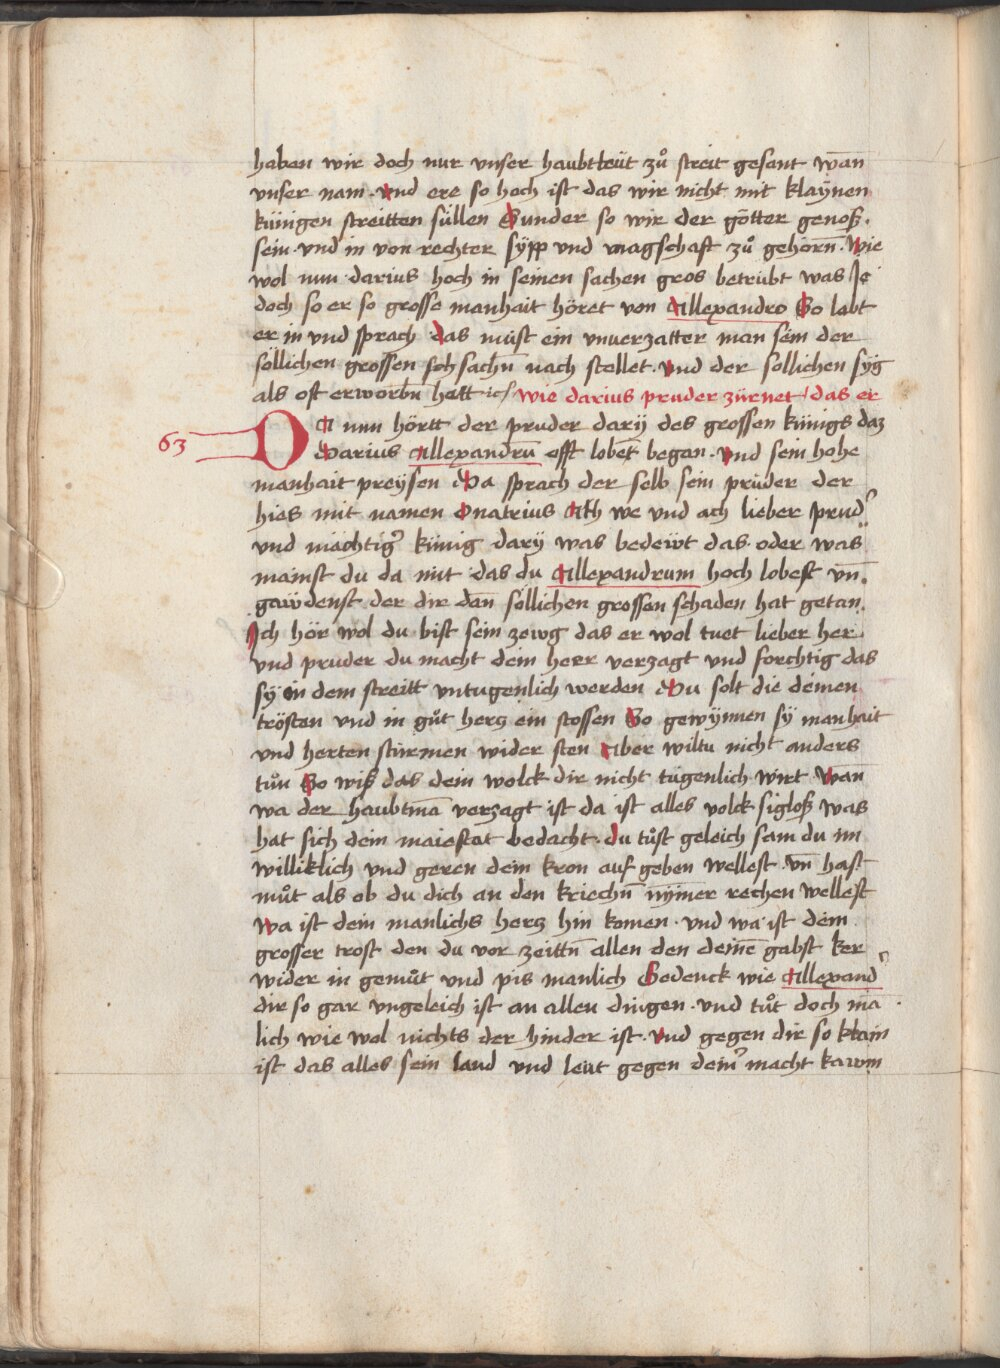 haben wir doch nur vnser haubtleüt zů streit gesant wān
vnser nam · vnd ere so hoch ist das wir nicht mit klaÿnen
künigen streitten süllen Sunder so wir der götter genoß ·
sein · vnd in von rechter sÿpp vnd magschaft zů gehörn̄ · Wie
wol nun · darius hoch in seinen sachen gros betrübt was Je
doch so er so grosse manhait höret von Allexandro So lobt
er in vnd sprach das müst ein vnuerzatter man sein der
söllichen grossen soh sachn̄ nach stellet · vnd der sollichen sÿg
als oft erworbn̄ hett ꝛc / wie darius pruder zürnet / das er
63 DA nun hörtt der pruder darÿ des grossen künigs daz
Darius Allexandrū offt lobet began · vnd sein hohe
manhait preÿsen Da sprach der selb sein prüder der
hies mit namen Onatrius Ach we vnd ach lieber prud᷑
vnd mächtig᷑ künig darÿ was bedeẅt das · oder was
mainst du da mit das du Allexandrum hoch lobest vn̄ ·
gaẅdenst der dir dan̄ söllichen grossen schaden hat getan ·
Ich hör wol du bist sein zewg das er wol tuet lieber her
vnd pruder du macht dein herr verzagt vnd forchtig das
sÿ in dem streitt vntugenlich werden Du solt die deinen
trösten vnd in gůt herz ein stossen So gewÿnnen sÿ manhait
vnd herten stürmen wider sten Aber wiltu nicht anders
tůn So wiß das dein wolck dir nicht tügenlich wirt Wan̄
wa der haubtmā verzagt ist da ist alles volck sigloß was
hat sich dein maiestat bedacht · du tůst geleich sam du im
williklich vnd geren dein kron auf geben wellest · vn̄ hast
můt als ob du dich an den kriechn̄ nÿm̄er rechen wellest
Wa ist dein manlichs herz hin komen · vnd wa ist dein
grosser trost den du vor zeittn̄ allen den deinē gabst ker
wider in gemůt vnd pis manlich Gedenck wie Allexand᷑
dir so gar vngeleich ist an allen dingen · vnd tůt doch mā ·
lich wie wol nichts der hinder ist · vnd gegen dir so klain
ist das alles sein land vnd leüt gegen dein᷑ macht kawm